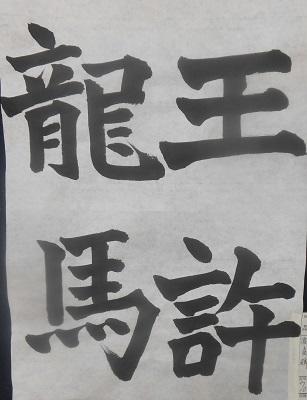 王許
龍馬